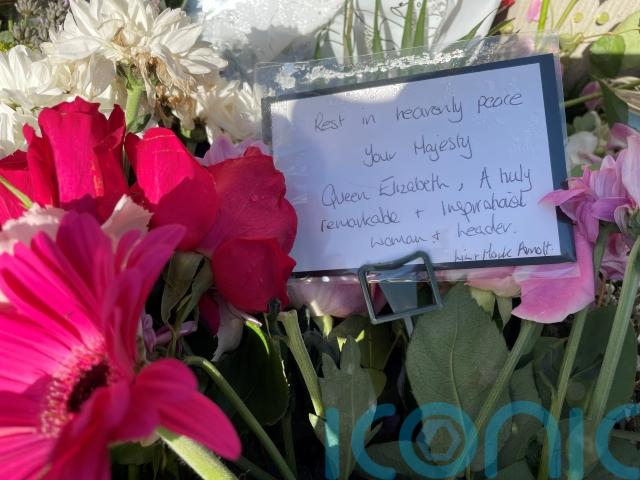 Rest in heavenly peace
Your Majesty
Queen Elizabeth, A truly
remarkable + Inspirational
woman + leader.
Mark Arnott.
iconic